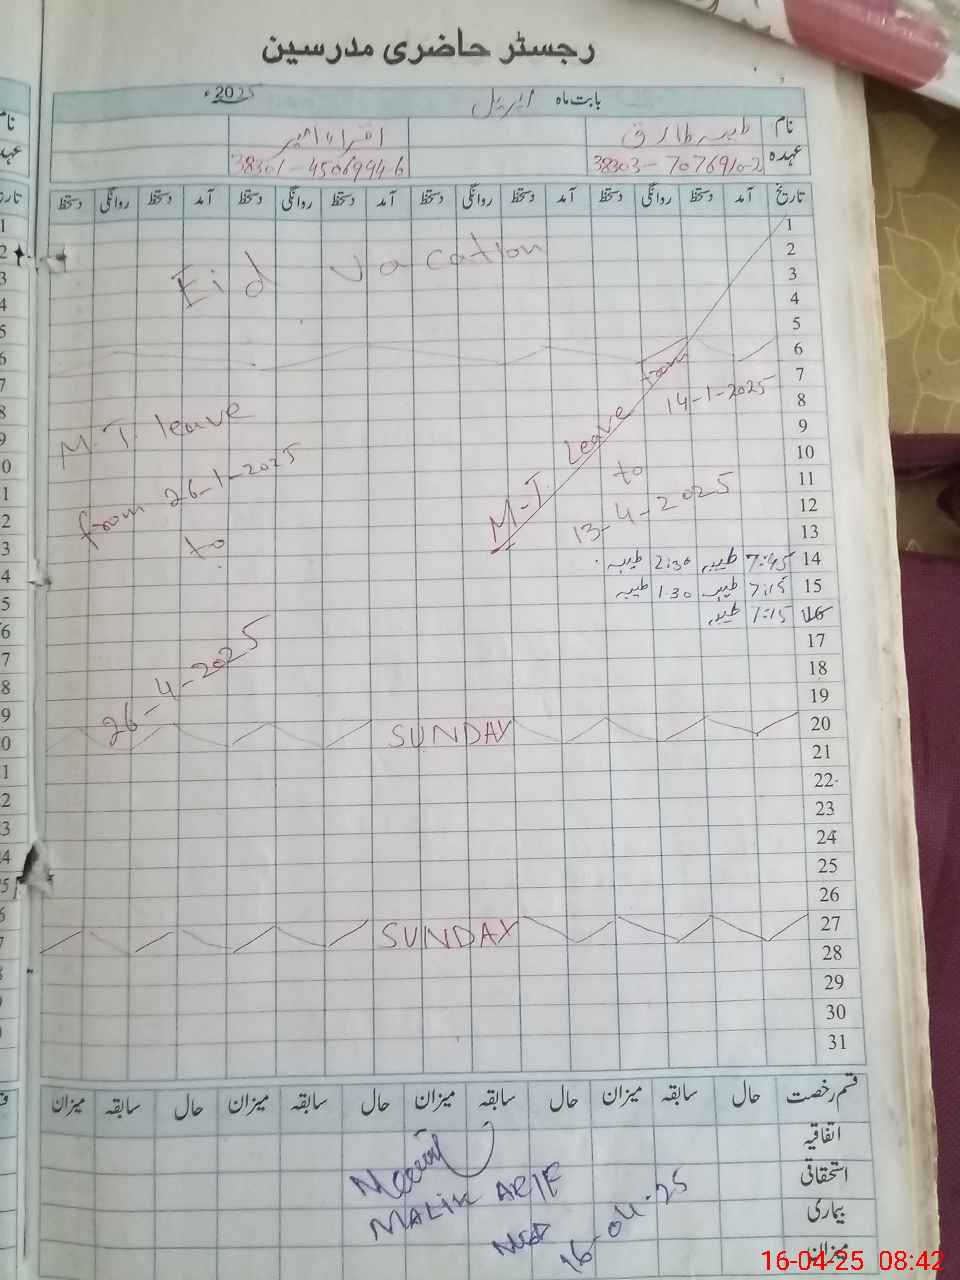 رجسٹر حاضری مدرسین
بابت ماہ اپریل 2025ء
نام طیبہ طارق اقراء امیر
عہدہ 38303-7076910-2 38301-4506994-6
تاریخ آمد دستخط روانگی دستخط آمد دستخط روانگی دستخط آمد دستخط روانگی دستخط آمد دستخط روانگی دستخط
1
2 Eid Vacation
3
4
5
6
7 from
8 14-1-2025
9 M.T. Leave M.T. leave
10
11 to from 26-1-2025
12 13-4-2025
13 to
14 7:45 طیبہ 2:30 طیبہ
15 7:15 طیبہ 1:30 طیبہ
16 7:15 طیبہ
17
18 26-4-2025
19
20 SUNDAY
21
22
23
24
25
26
27 SUNDAY
28
29
30
31
قسم رخصت حال سابقہ میزان حال سابقہ میزان حال سابقہ میزان حال سابقہ میزان
اتفاقیہ
استحقاقی
MALIK ARIF
بیماری
16-04-25
میزان
16-04-25 08:42